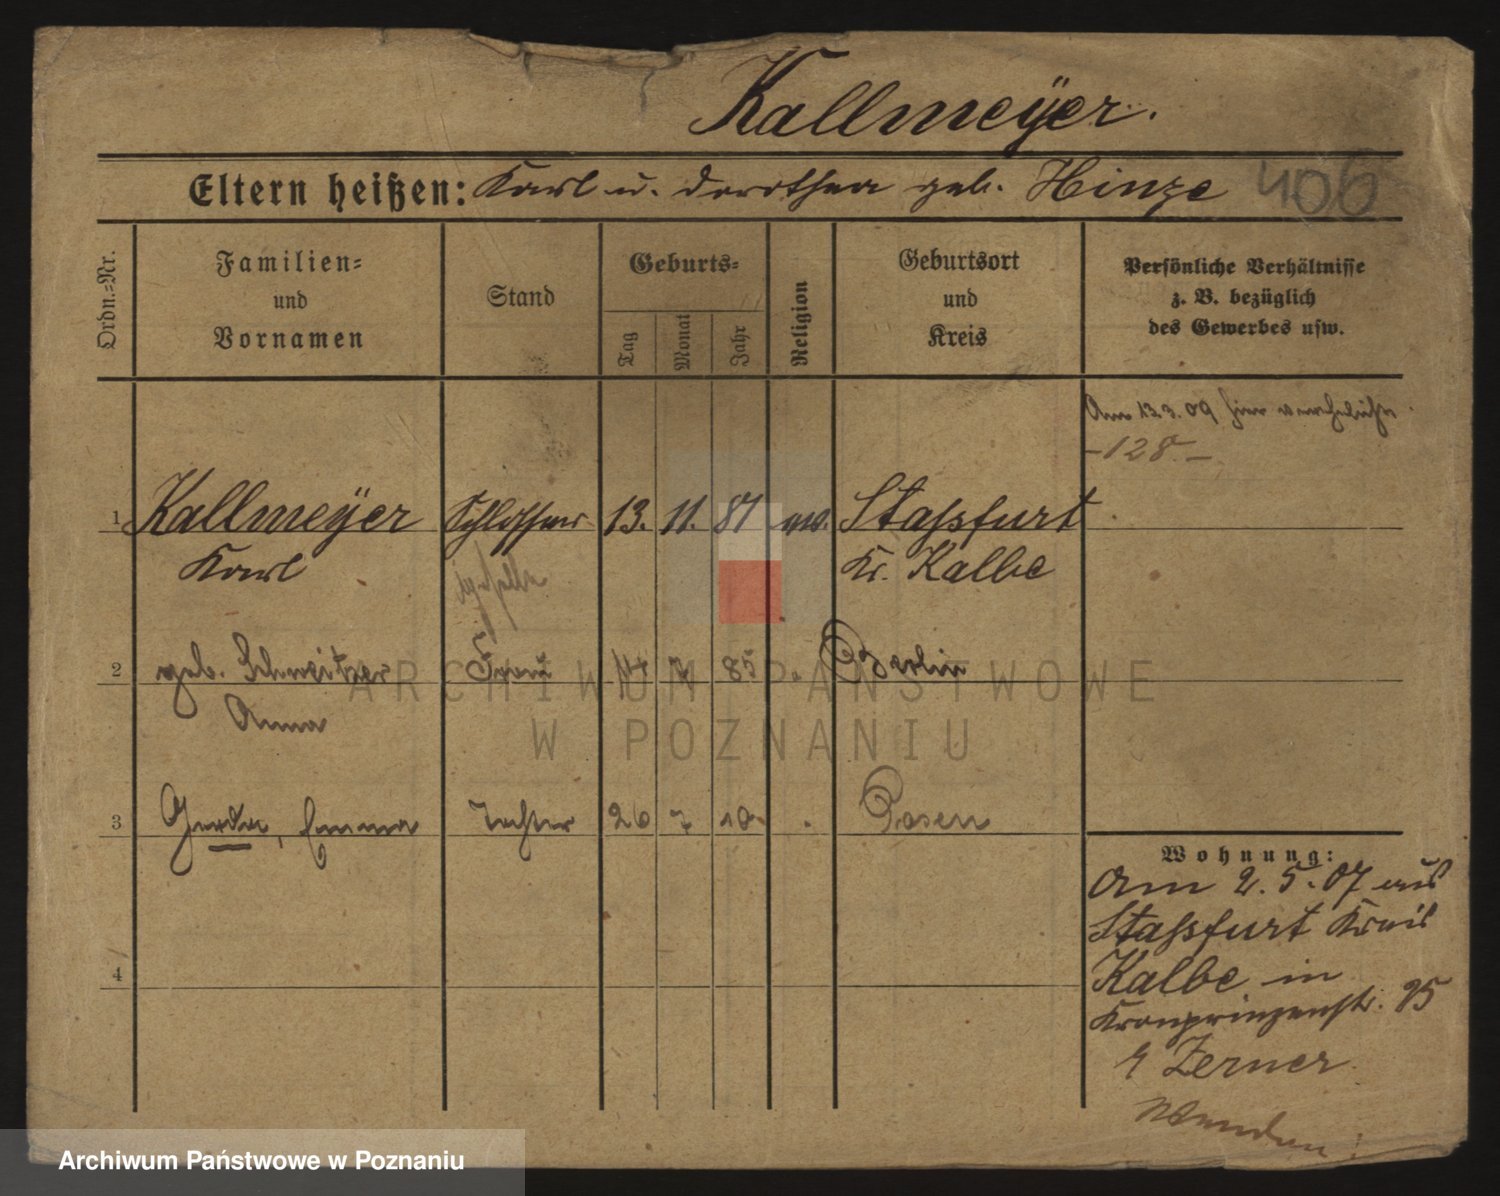 Kallmeÿer.
Eltern heißen: Karl u. Dorothea geb. Hinze
406
Ordn.-Nr.
Familien-
und
Vornamen
Stand
Geburts-
Tag
Monat
Jahr
Religion
Geburtsort
und
Kreis
Persönliche Verhältnisse
z. B. bezüglich
des Gewerbes usw.
Am 13.3.09 hier verehelicht
-128-
1 Kallmeÿer Schlosser 13. 11. 81 ev. Stassfurt
Karl geselle Kr. Kalbe
2 geb. Schweitzer Frau 14 7 85 Berlin
Anna
3 Gerda, Emma Tochter 26 7 10 Posen
4
Wohnung:
Am 2.5.07 aus
Stassfurt Kreis
Kalbe in
Kronprinzenstr. 95
Zerner
Wenden!
ARCHIWUM PAŃSTWOWE
W POZNANIU
Archiwum Państwowe w Poznaniu